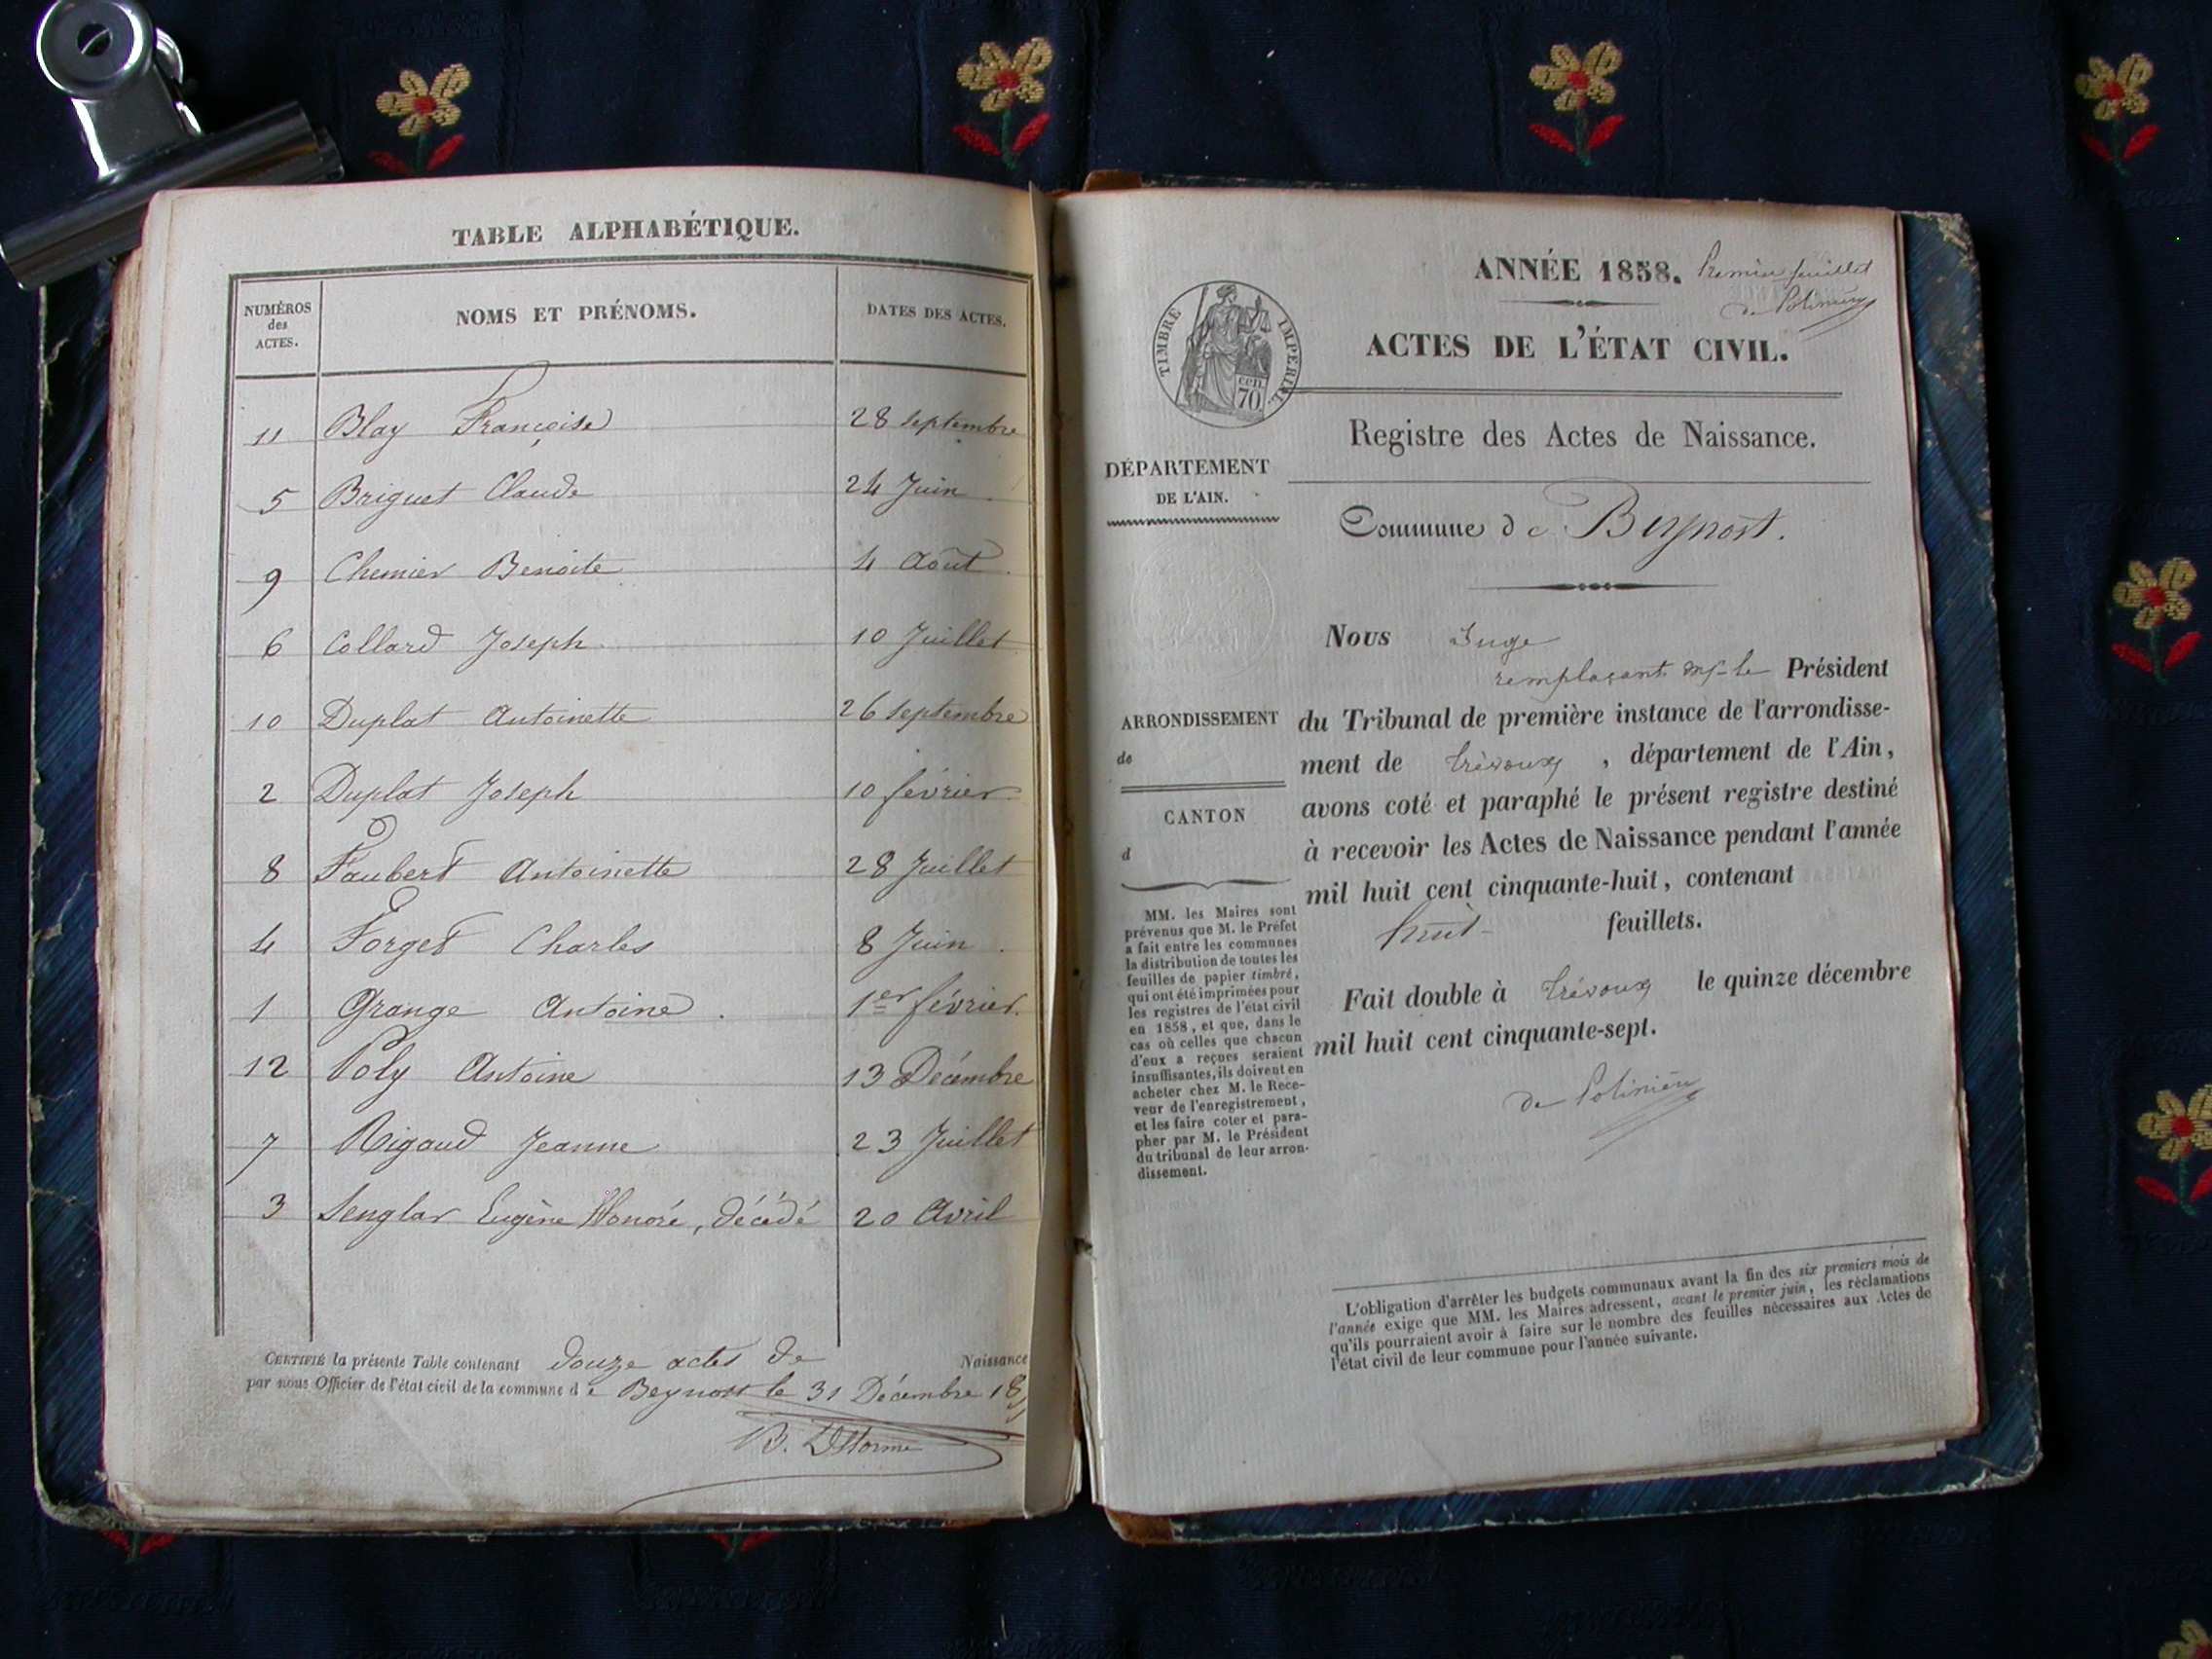 TABLE ALPHABÉTIQUE.
NUMÉROS
des
ACTES.
NOMS ET PRÉNOMS.
DATES DES ACTES.
11 Blay Françoise 28 septembre
5 Briguet Claude 24 Juin
9 Chemier Benoite 4 Août
6 Collard Joseph 10 Juillet
10 Duplat Antoinette 26 septembre
2 Duplat Joseph 10 février
8 Faubert Antoinette 28 Juillet
4 Forget Charles 8 Juin
1 Grange Antoine 1er février
12 Poly Antoine 13 Décembre
7 Rigaud Jeanne 23 Juillet
3 Senglar Eugène Honoré, décédé 20 Avril
CERTIFIÉ la présente Table contenant douze actes de Naissance
par nous Officier de l'état civil de la commune de Beynost le 31 Décembre 18
ANNÉE 1858. Premier feuillet
de Polinière
TIMBRE IMPERIAL.
cen.
70
ACTES DE L'ÉTAT CIVIL.
Registre des Actes de Naissance.
DÉPARTEMENT
DE L'AIN.
Commune de Beynost.
Nous Juge
remplaçant Mr le Président
du Tribunal de première instance de l'arrondisse-
ment de Trévoux, département de l'Ain,
avons coté et paraphé le présent registre destiné
à recevoir les Actes de Naissance pendant l'année
mil huit cent cinquante-huit, contenant
huit feuillets.
Fait double à Trévoux le quinze décembre
mil huit cent cinquante-sept.
de Polinière
ARRONDISSEMENT
de
CANTON
d
MM. les Maires sont
prévenus que M. le Préfet
a fait entre les communes
la distribution de toutes les
feuilles de papier timbré,
qui ont été imprimées pour
les registres de l'état civil
en 1858, et que, dans le
cas où celles que chacun
d'eux a reçues seraient
insuffisantes, ils doivent en
acheter chez M. le Rece-
veur de l'enregistrement,
et les faire coter et para-
pher par M. le Président
du tribunal de leur arron-
dissement.
L'obligation d'arrêter les budgets communaux avant la fin des six premiers mois de
l'année exige que MM. les Maires adressent, avant le premier juin, les réclamations
qu'ils pourraient avoir à faire sur le nombre des feuilles nécessaires aux Actes de
l'état civil de leur commune pour l'année suivante.